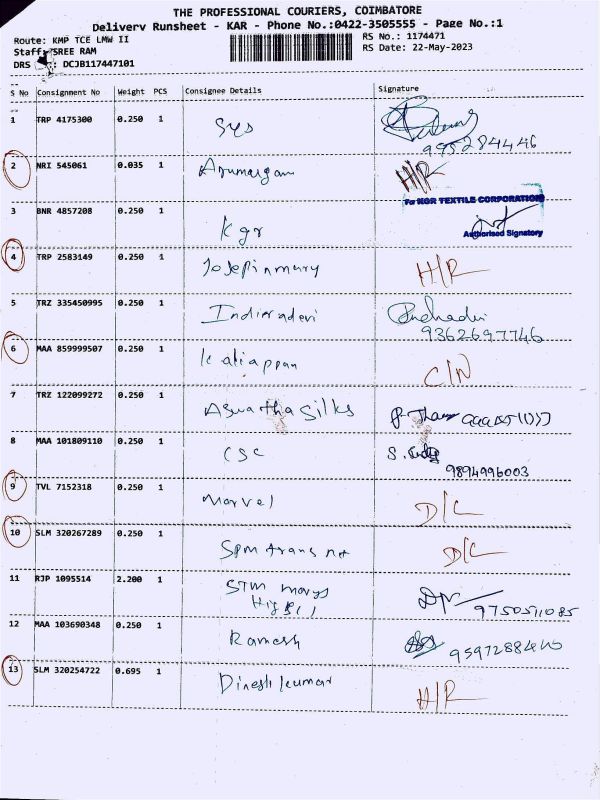 THE PROFESSIONAL COURIERS, COIMBATORE
Delivery Runsheet - KAR - Phone No.:0422-3505555 - Page No.:1
Route: KMP TCE LMW II RS No.: 1174471
Staff: SREE RAM RS Date: 22-May-2023
DRS : DCJB117447101
S No Consignment No Weight PCS Consignee Details Signature
1 TRP 4175300 0.250 1 Sys
9952284446
2 NRI 545061 0.035 1 Arumurgam H/R
For NGR TEXTILE CORPORATION
3 BNR 4857208 0.250 1 Kgr
Authorised Signatory
4 TRP 2583149 0.250 1 Josepinmary H/R
5 TRZ 335450995 0.250 1 Indiradevi
9362697746
6 MAA 859999507 0.250 1 Kaliappan C/N
7 TRZ 122099272 0.250 1 Aswatha Silks
8 MAA 101809110 0.250 1 CSC
9894996003
9 TVL 7152318 0.250 1 Marvel D/L
10 SLM 320267289 0.250 1 Spm trans net D/L
11 RJP 1095514 2.200 1 STM
9750511085
12 MAA 103690348 0.250 1 Ramesh
13 SLM 320254722 0.695 1 Dineshkumar H/R